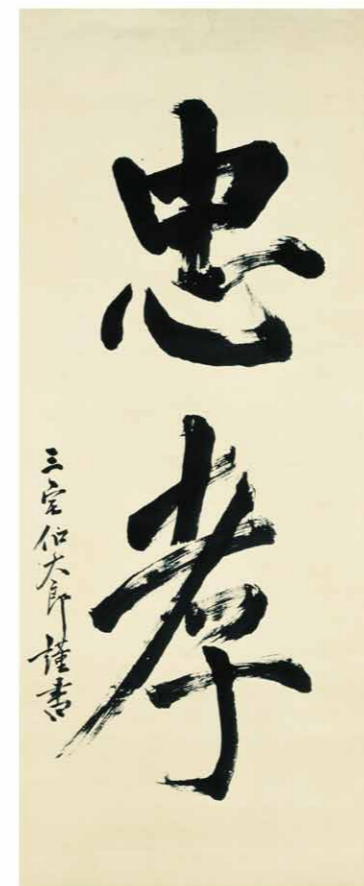 忠孝
三宅伯太郎謹書